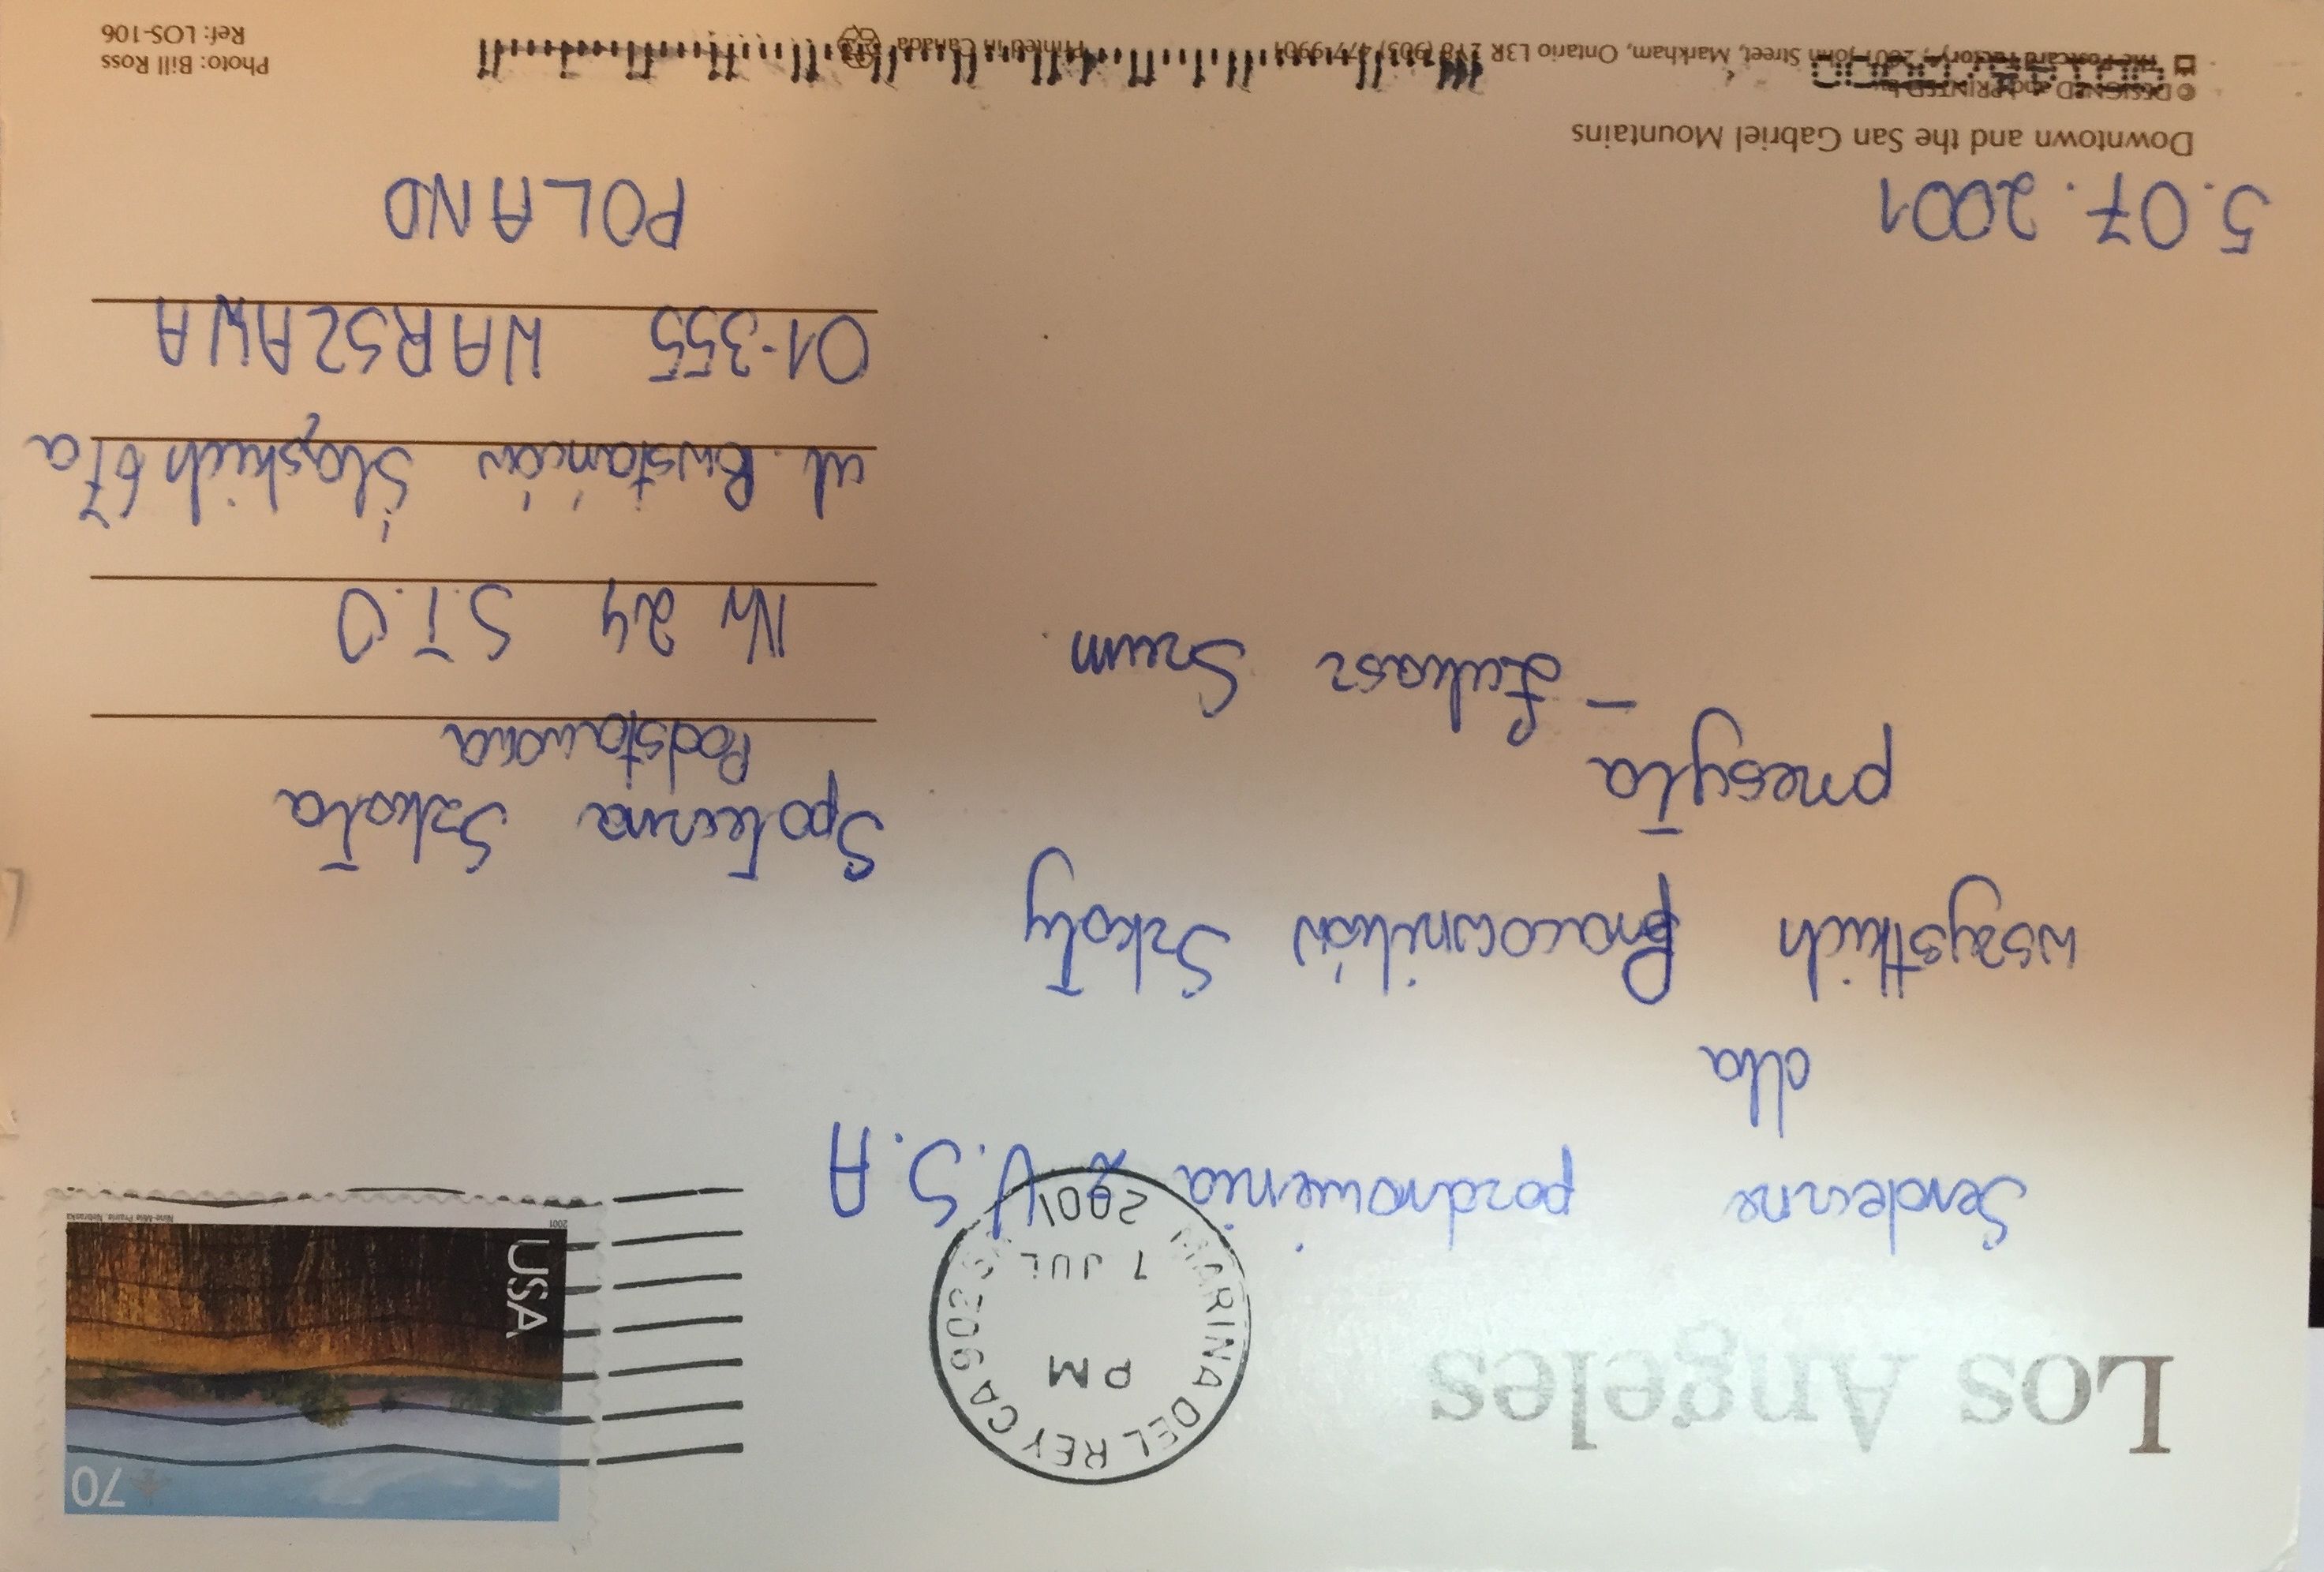 Los Angeles
MARINA DEL REY CA 90295
PM
7 JUL
2001
USA
70
2001
Nine-Mile Prairie, Nebraska
Serdeczne pozdrowienia z U.S.A
dla
wszystkich Pracowników Szkoły
przesyła
– Łukasz Szum
5.07.2001
Społeczna Szkoła
Podstawowa
Nr 24 S.T.O
ul. Powstańców Śląskich 67a
01-355 WARSZAWA
POLAND
Downtown and the San Gabriel Mountains
© DESIGNED and PRINTED by
The Postcard Factory, 2801 John Street, Markham, Ontario L3R 2Y8 (905) 477-9901
Printed in Canada
Photo: Bill Ross
Ref: LOS-106